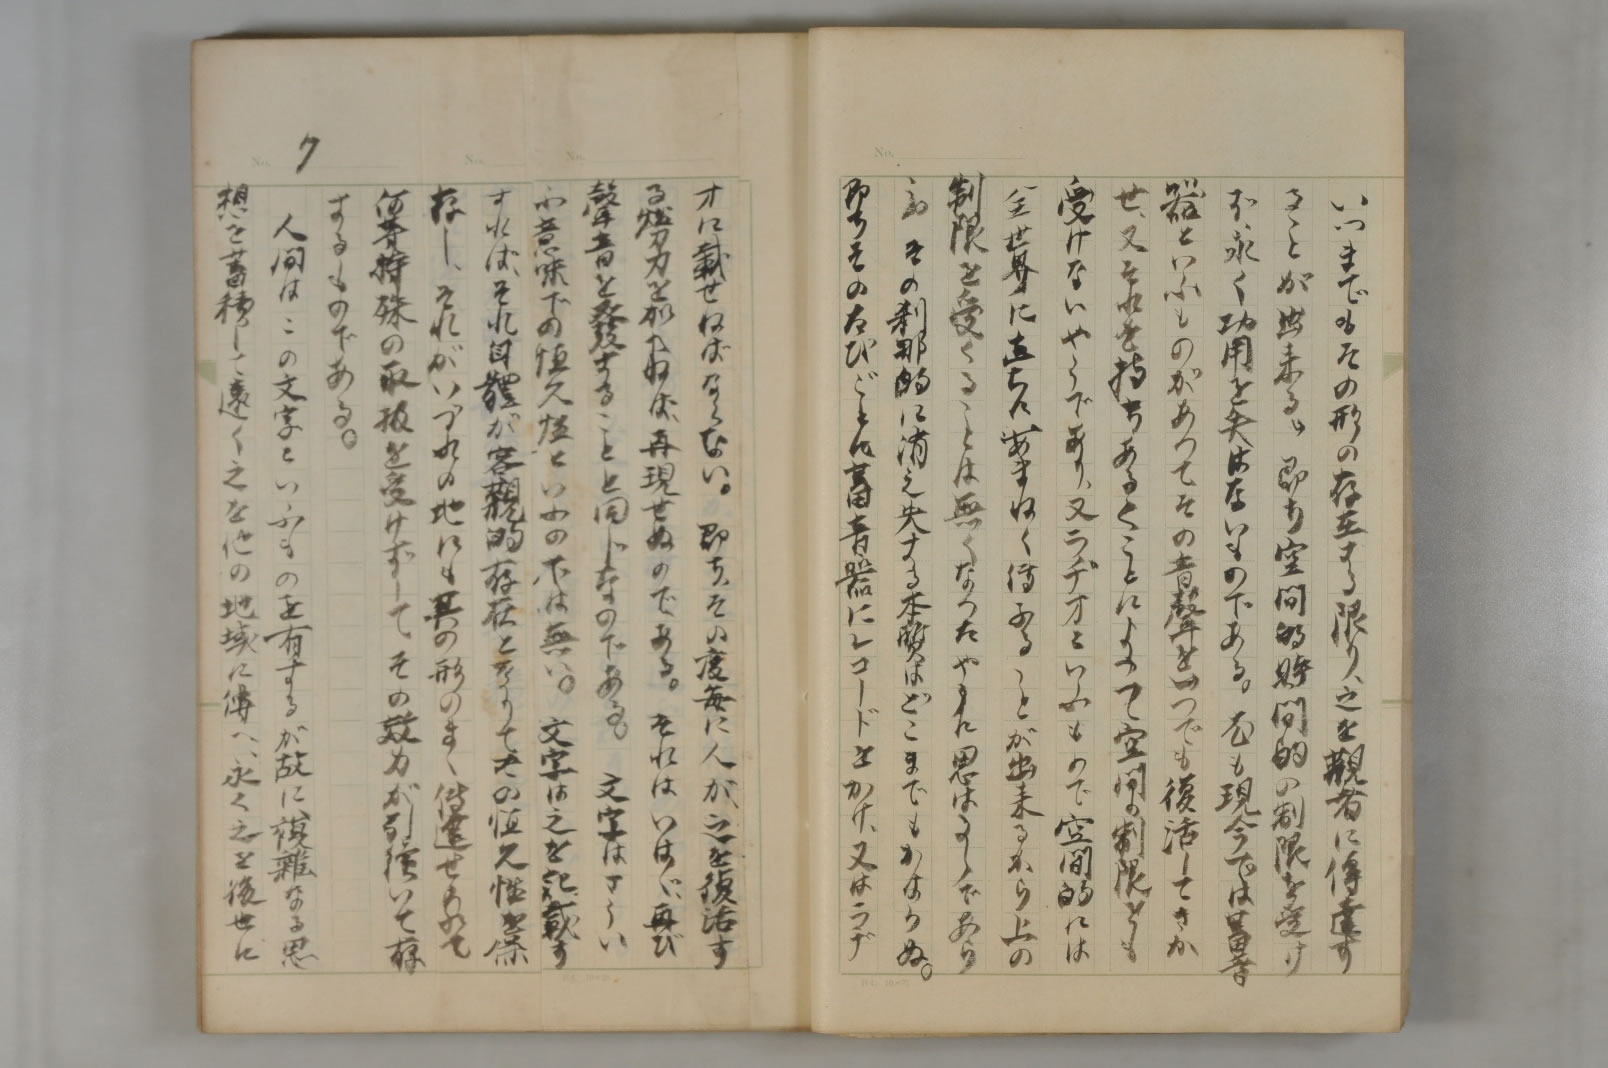 いつまでもその形の存在する限り、之を観者に傳達す
ることが出来る。即ち空間的時間的の制限を受け
ず、永く功用を失はないものである。尤も現今では蓄音
器といふものがあつてその音聲をいつでも復活してきか
せ、又それを持ちあるくことによつて空間の制限をも
受けないやうであり、又ラヂオといふもので空間的には
全世界に直ちにあまねく傳ふることが出来るから上の
制限を受くることは無くなつたやうに思はるゝであら
う。その刹那的に消え失する本質はどこまでもかはらぬ。
即ちそのたびごとに蓄音器にレコードをかけ、又はラヂ
オに載せねばならない。即ち、その度毎に人が、之を復活す
る勞力を加へねば、再現せぬのである。それはいはゞ、再び
聲音を發することと同じなのである。文字はさうい
ふ意味での恒久性といふのでは無い。文字は之を記載す
れば、それ自體が客觀的存在となりて、その恒久性を保
存し、それがいづれの地にも其の形のまゝ傳達せられて
何等特殊の取扱を受けずして、その效力が引續いて存
するものである。
7
人間はこの文字といふものを有するが故に、複雜なる思
想を蓄積して遠く之を他の地域に傳へ、永く之を後世に